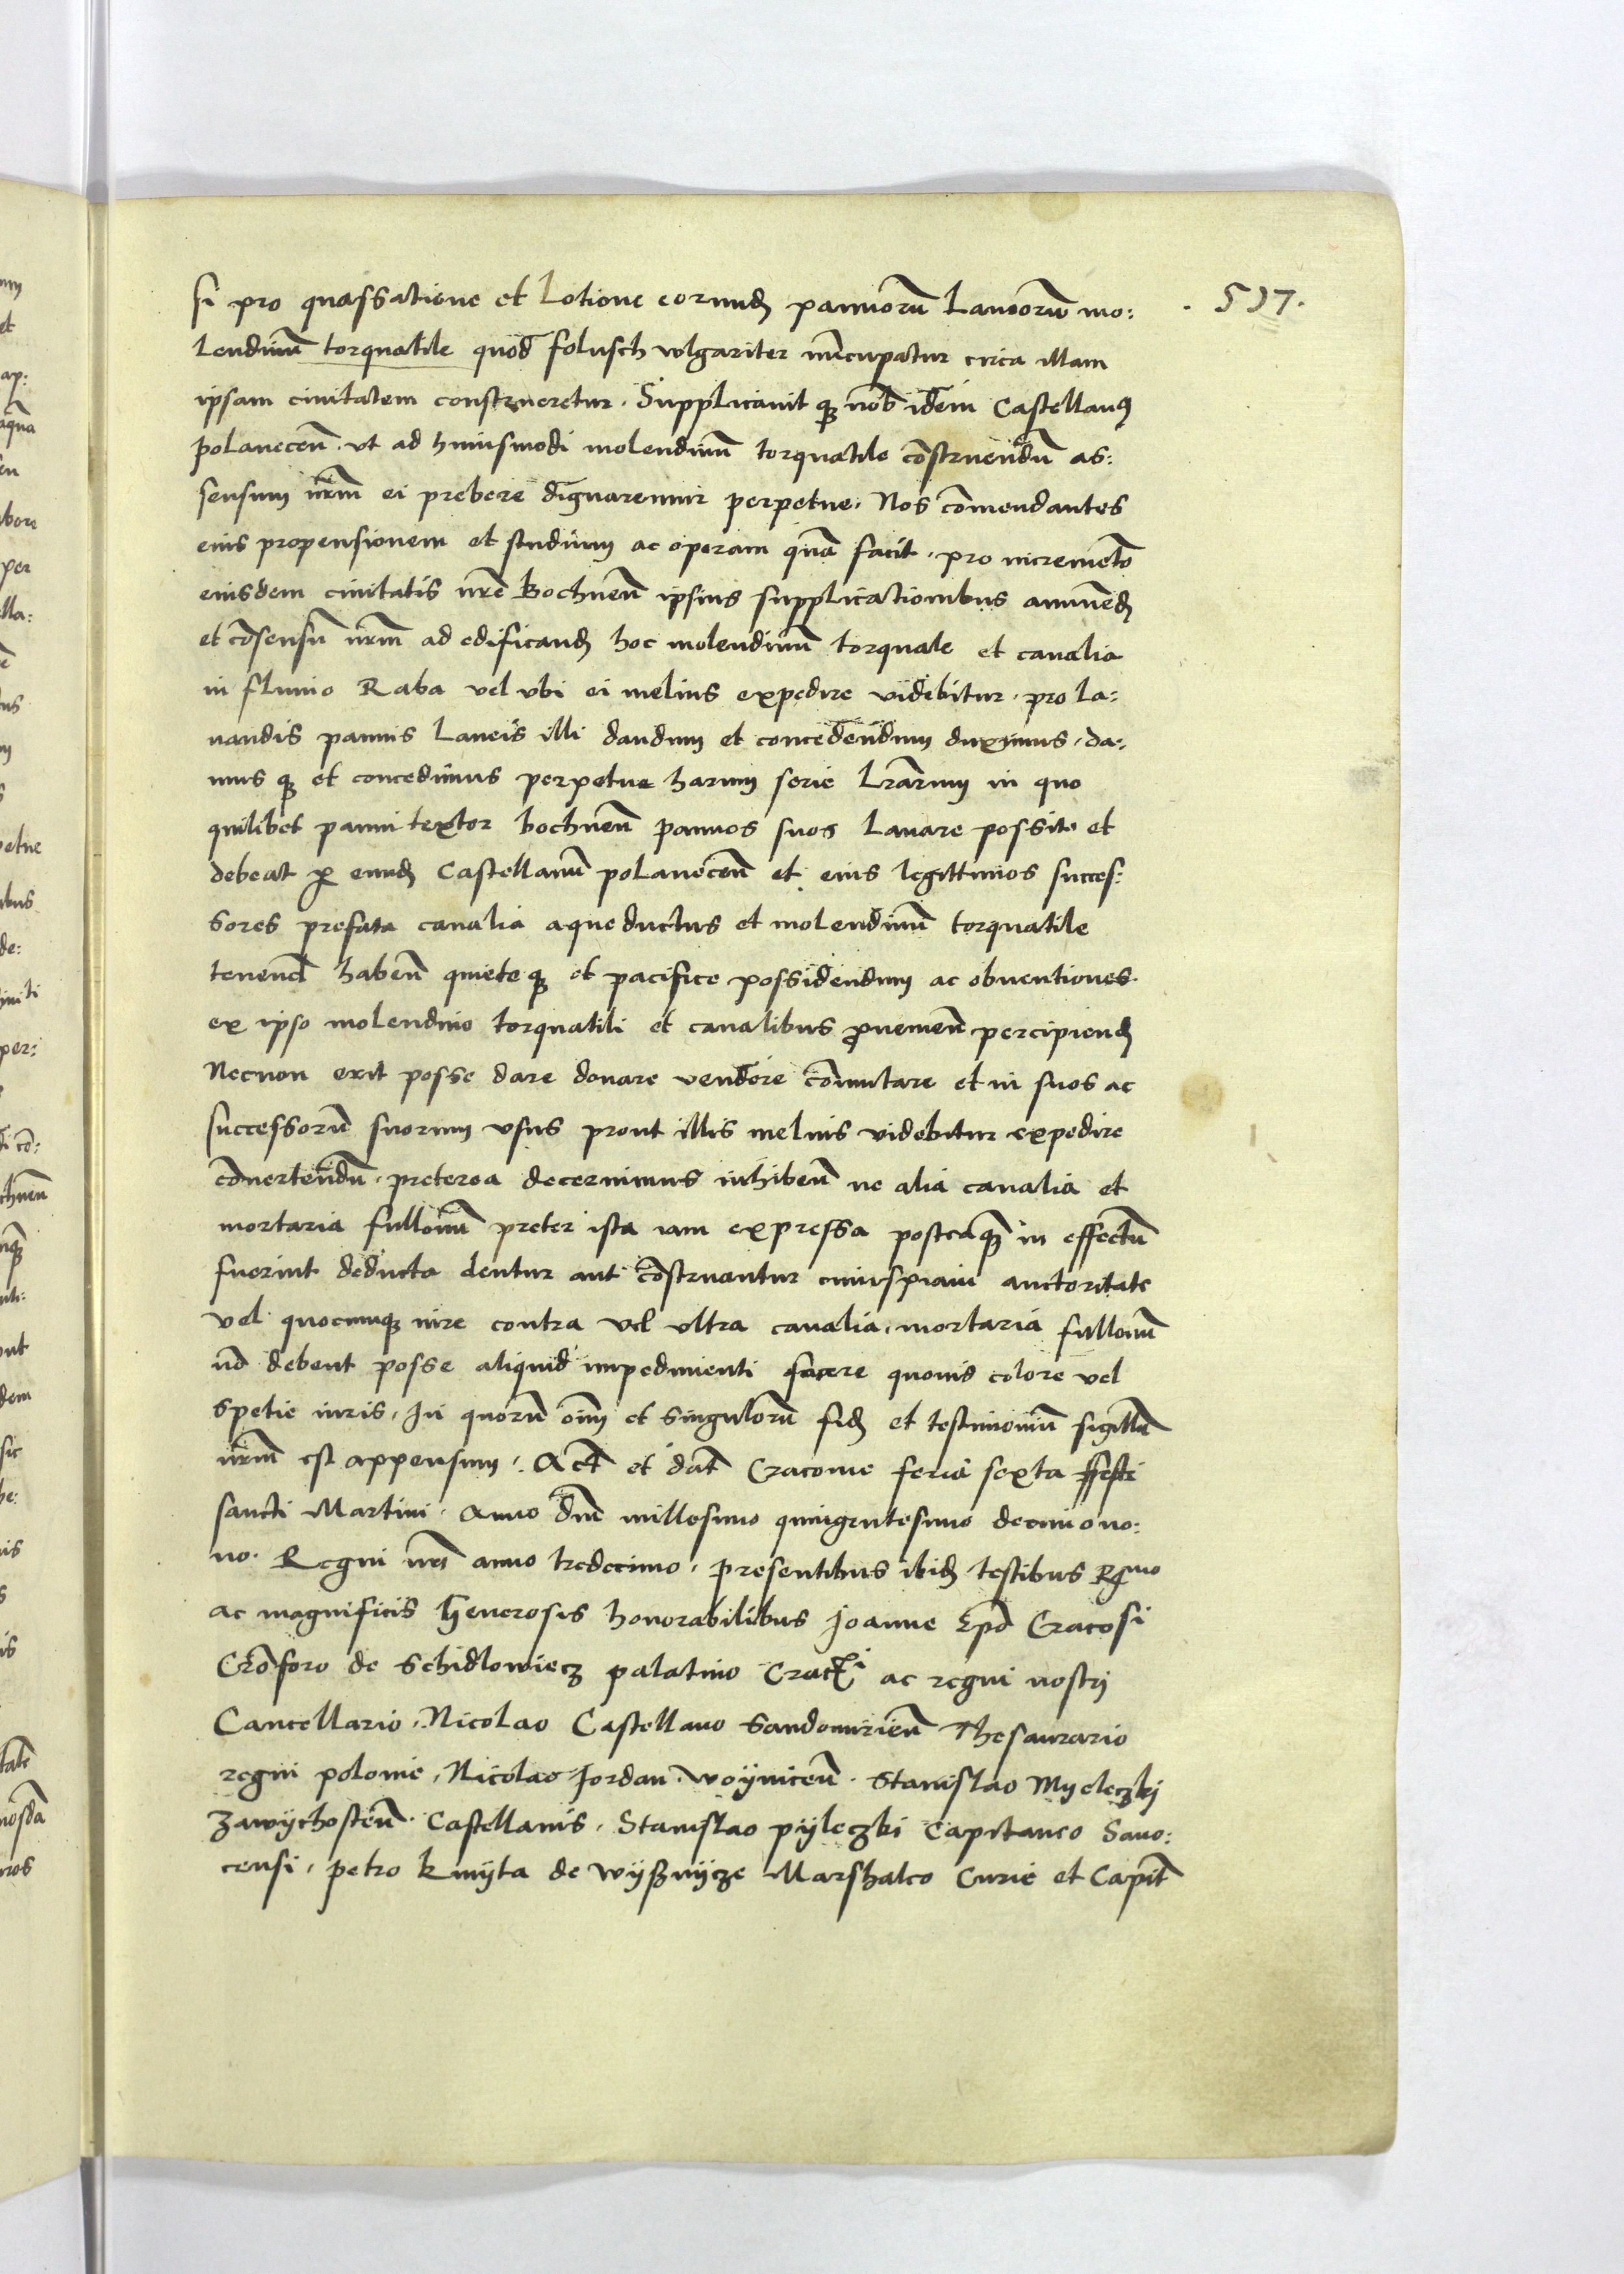 . 517.
si pro quassatione et Lotione eorund(em) pannorū Laneorū mo:
Lendinū torquatile quod folusch vulgariter nūcupatur circa illam
ipsam ciuitatem construeretur. Supplicauit q(ue) nob̄ idem Castellanꝰ
polanecen̄. vt ad huiusmodi molendinū torquatile cōstruendū as:
sensum nr̄m ei prebere dignaremur perpetue. Nos cōmendantes
eius propensionem et studium ac operam quā facit. pro incremēto
eiusdem ciuitatis nr̄e Bochnen̄ ipsius supplicationibus annuend(um)
et cōsensū nr̄m ad edificand(um) hoc molendinū torquale et canalia
in fluuio Raba vel vbi ei melius expedire videbitur. pro la:
uandis pannis Laneis illi dandum et concedendum duximus. da:
mus q(ue) et concedimus perpetue harum serie Lr̄arum in quo
quilibet panni textor bochnen̄ pannos suos Lauare possit et
debeat p̱ eund(em) Castellanū polanecen̄ et eius legittimos succes:
sores prefata canalia aqueductus et molendinū torquatile
tenend̄ haben̄ quiete q(ue) et pacifice possidendum ac obuentiones
ex ipso molendino torquatili et canalibus ꝓuenien̄ percipiend(um)
Necnon erit posse dare donare vendere cōmutare et in suos ac
successorū suorum vsus prout illis melius videbitur expedire
cōuertendū. preterea decernimus inhiben̄ ne alia canalia et
mortaria fullonū preter ista iam expressa posteaq̄ in effectū
fuerint deducta dentur aut cōstruantur cuiuspiam auctoritate
vel quocumq(ue) iure contra vel vltra canalia. mortaria fullonū
nō debent posse aliquid impedimenti facere quouis colore vel
spetie iuris. In quorū om̄ et singulorū fid(em) et testimoniū sigillū
nr̄m est appensum. Act̄ et dat̄ Cracouie feria sexta festi
sancti Martini. Anno dn̄i millesimo quingentesimo decimo no:
no. Regni nr̄i anno tredecimo. presentibus ibid(em) testibus Rm̄o
ac magnificis Generosis honorabilibus Joanne Ep̄o Cracosi
Cr̄oforo de Schidlowiecz palatino Crac̄i ac regni nostri
Cancellario. Nicolao Castellano Sandomirien̄ Thesaurario
regni polonie. Nicolao Jordan. woÿnicen̄. Stanislao Myeleczki
Zawÿchosten̄. Castellanis. Stanislao pÿleczki Capitaneo Sano:
censi. petro kmÿta de wÿsznÿcze Marshalco Curie et Capit̄